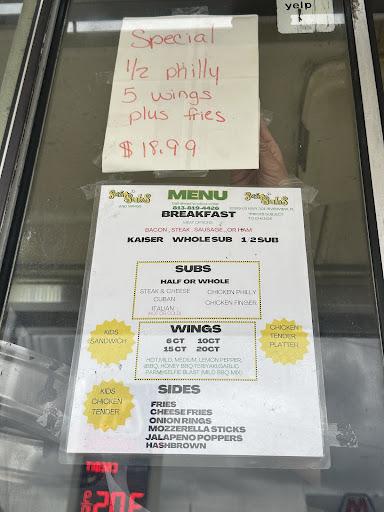 yelp
Special
1/2 philly
5 wings
plus fries
$18.99
Subs
AND WINGS
MENU
813-819-4426
Subs
BREAKFAST
MEAT OPTIONS
BACON, STEAK, SAUSAGE, OR HAM
KAISER WHOLE SUB 1 2 SUB
SUBS
HALF OR WHOLE
STEAK & CHEESE
CHICKEN PHILLY
CUBAN
CHICKEN FINGER
ITALIAN
HOT OR COLD
KIDS
SANDWICH
WINGS
6 CT 10CT
15 CT 20CT
HOT, MILD, MEDIUM, LEMON PEPPER,
BBQ, HONEY BBQ, TERIYAKI, GARLIC
PARM, SELFIE BLAST (MILD BBQ MIX)
CHICKEN
TENDER
PLATTER
KIDS
CHICKEN
TENDER
SIDES
FRIES
CHEESE FRIES
ONION RINGS
MOZZERELLA STICKS
JALAPENO POPPERS
HASHBROWN